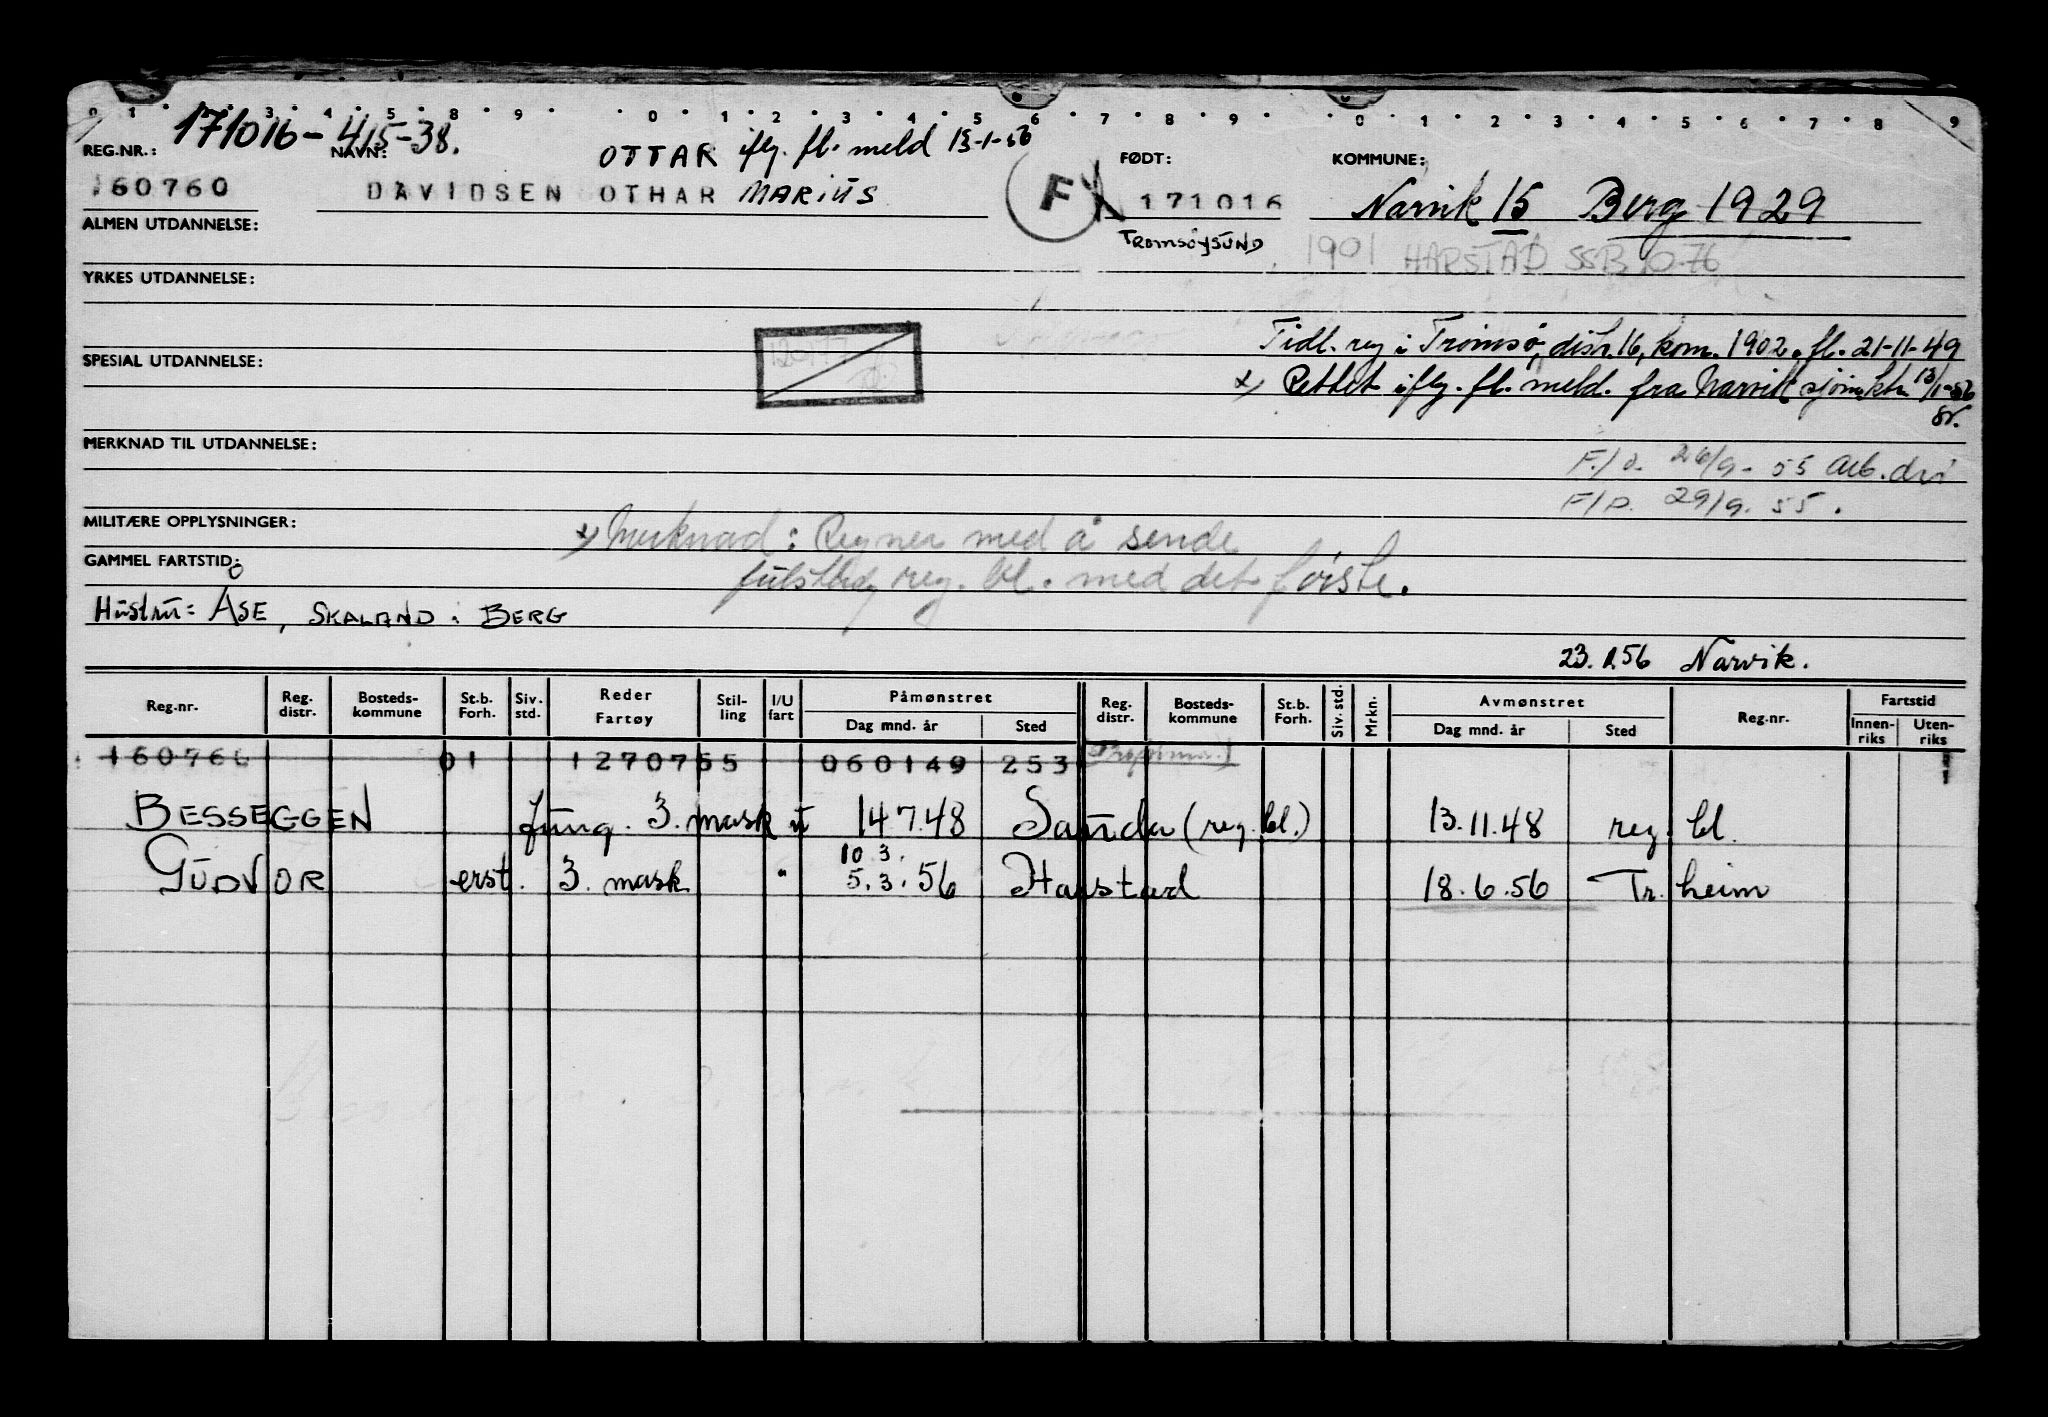 0 1 3 4 5 8 9 0 1 2 3 4 5 6 7 8 9 0 1 2 3 4 5 6 7 8 9
171016-415-38.
REG.NR.: NAVN: OTTAR iflg. fl. meld 13-1-56 FØDT: KOMMUNE:
160760 DAVIDSEN OTHAR MARIUS F 171016 Narvik 15 Berg 1929
ALMEN UTDANNELSE: TROMSØYSUND 1901 HARSTAD SSB 10-76
YRKES UTDANNELSE:
Tidl. reg i Tromsø, distr. 16, kom. 1902. fl. 21-11-49
SPESIAL UTDANNELSE:
x) Rettet iflg. fl. meld. fra Narvik sjøm.ktr 13/1-56
MERKNAD TIL UTDANNELSE:
F/O. 26/9- 55 Arb.dir
F/O. 29/9. 55.
MILITÆRE OPPLYSNINGER: x) Merknad: Regner med å sende
GAMMEL FARTSTID: fulst. reg. bl. med det første.
Hustru: ÅSE, SKALAND i BERG
23.1.56 Narvik.
Reg.nr. Reg. distr. Bosteds-kommune St.b. Forh. Siv. std. Reder Fartøy Stil-ling I/U fart Påmønstret Dag mnd. år Sted Reg. distr. Bosteds-kommune St.b. Forh. Siv. std. Mrkn. Avmønstret Dag mnd. år Sted Reg.nr. Fartstid Innen-riks Uten-riks
160760 01 1270755 060149 253
BESSEGGEN fung. 3. mask u 14 7.48 Sauda (reg. bl.) 13.11.48 reg. bl.
10 3.
GUDVOR erst. 3. mask " 5.3.56 Harstad 18.6.56 Tr. heim